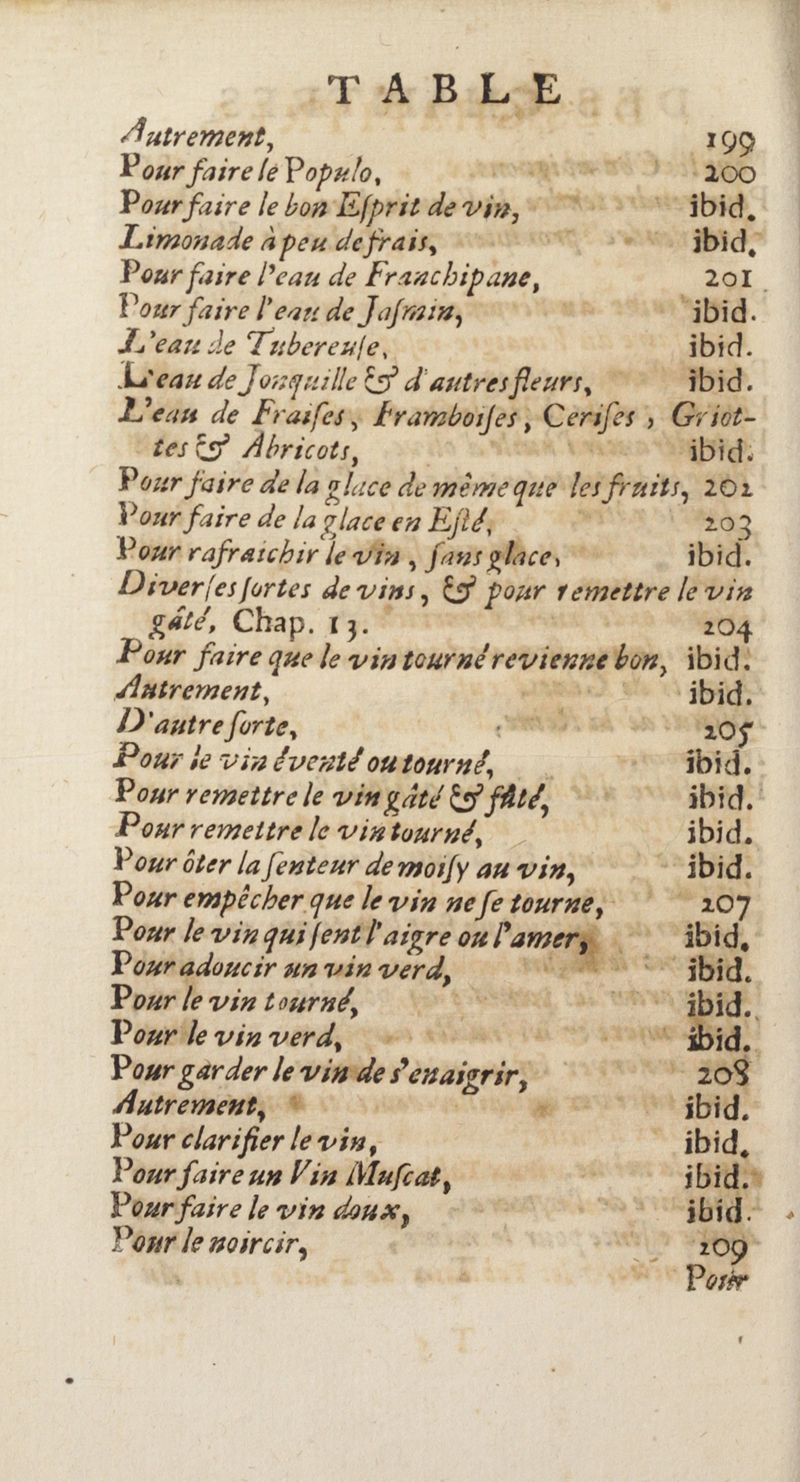 TABLE
Autrement, 199
Pour faire le Populo, 200
Pour faire le bon Eſprit de vin, ibid.
Limonade à peu de frais, ibid.
Pour faire l'eau de Franchipane, 201
Pour faire l'eau de Jaſmin, ibid.
L'eau de Tubereuſe, ibid.
L'eau de Jonquille & d'autres fleurs, ibid.
L'eau de Fraiſes, Framboiſes, Ceriſes, Griot-
tes & Abricots, ibid.
Pour faire de la glace de même que les fruits, 202
Pour faire de la glace en Eſté, 203
Pour rafraichir le vin, ſans glace, ibid.
Diverſes ſortes de vins, & pour remettre le vin
gâté, Chap. 13. 204
Pour faire que le vin tourné revienne bon, ibid.
Autrement, ibid.
D'autre ſorte, 205
Pour le vin éventé ou tourné, ibid.
Pour remettre le vin gâté & fûté, ibid.
Pour remettre le vin tourné, ibid.
Pour ôter la ſenteur de moiſy au vin, ibid.
Pour empêcher que le vin ne ſe tourne, 207
Pour le vin qui ſent l'aigre ou l'amer, ibid.
Pour adoucir un vin verd, ibid.
Pour le vin tourné, ibid.
Pour le vin verd, ibid.
Pour garder le vin de s'enaigrir, 208
Autrement, ibid.
Pour clarifier le vin, ibid.
Pour faire un Vin Muſcat, ibid.
Pour faire le vin doux, ibid.
Pour le noircir, 209
Pour